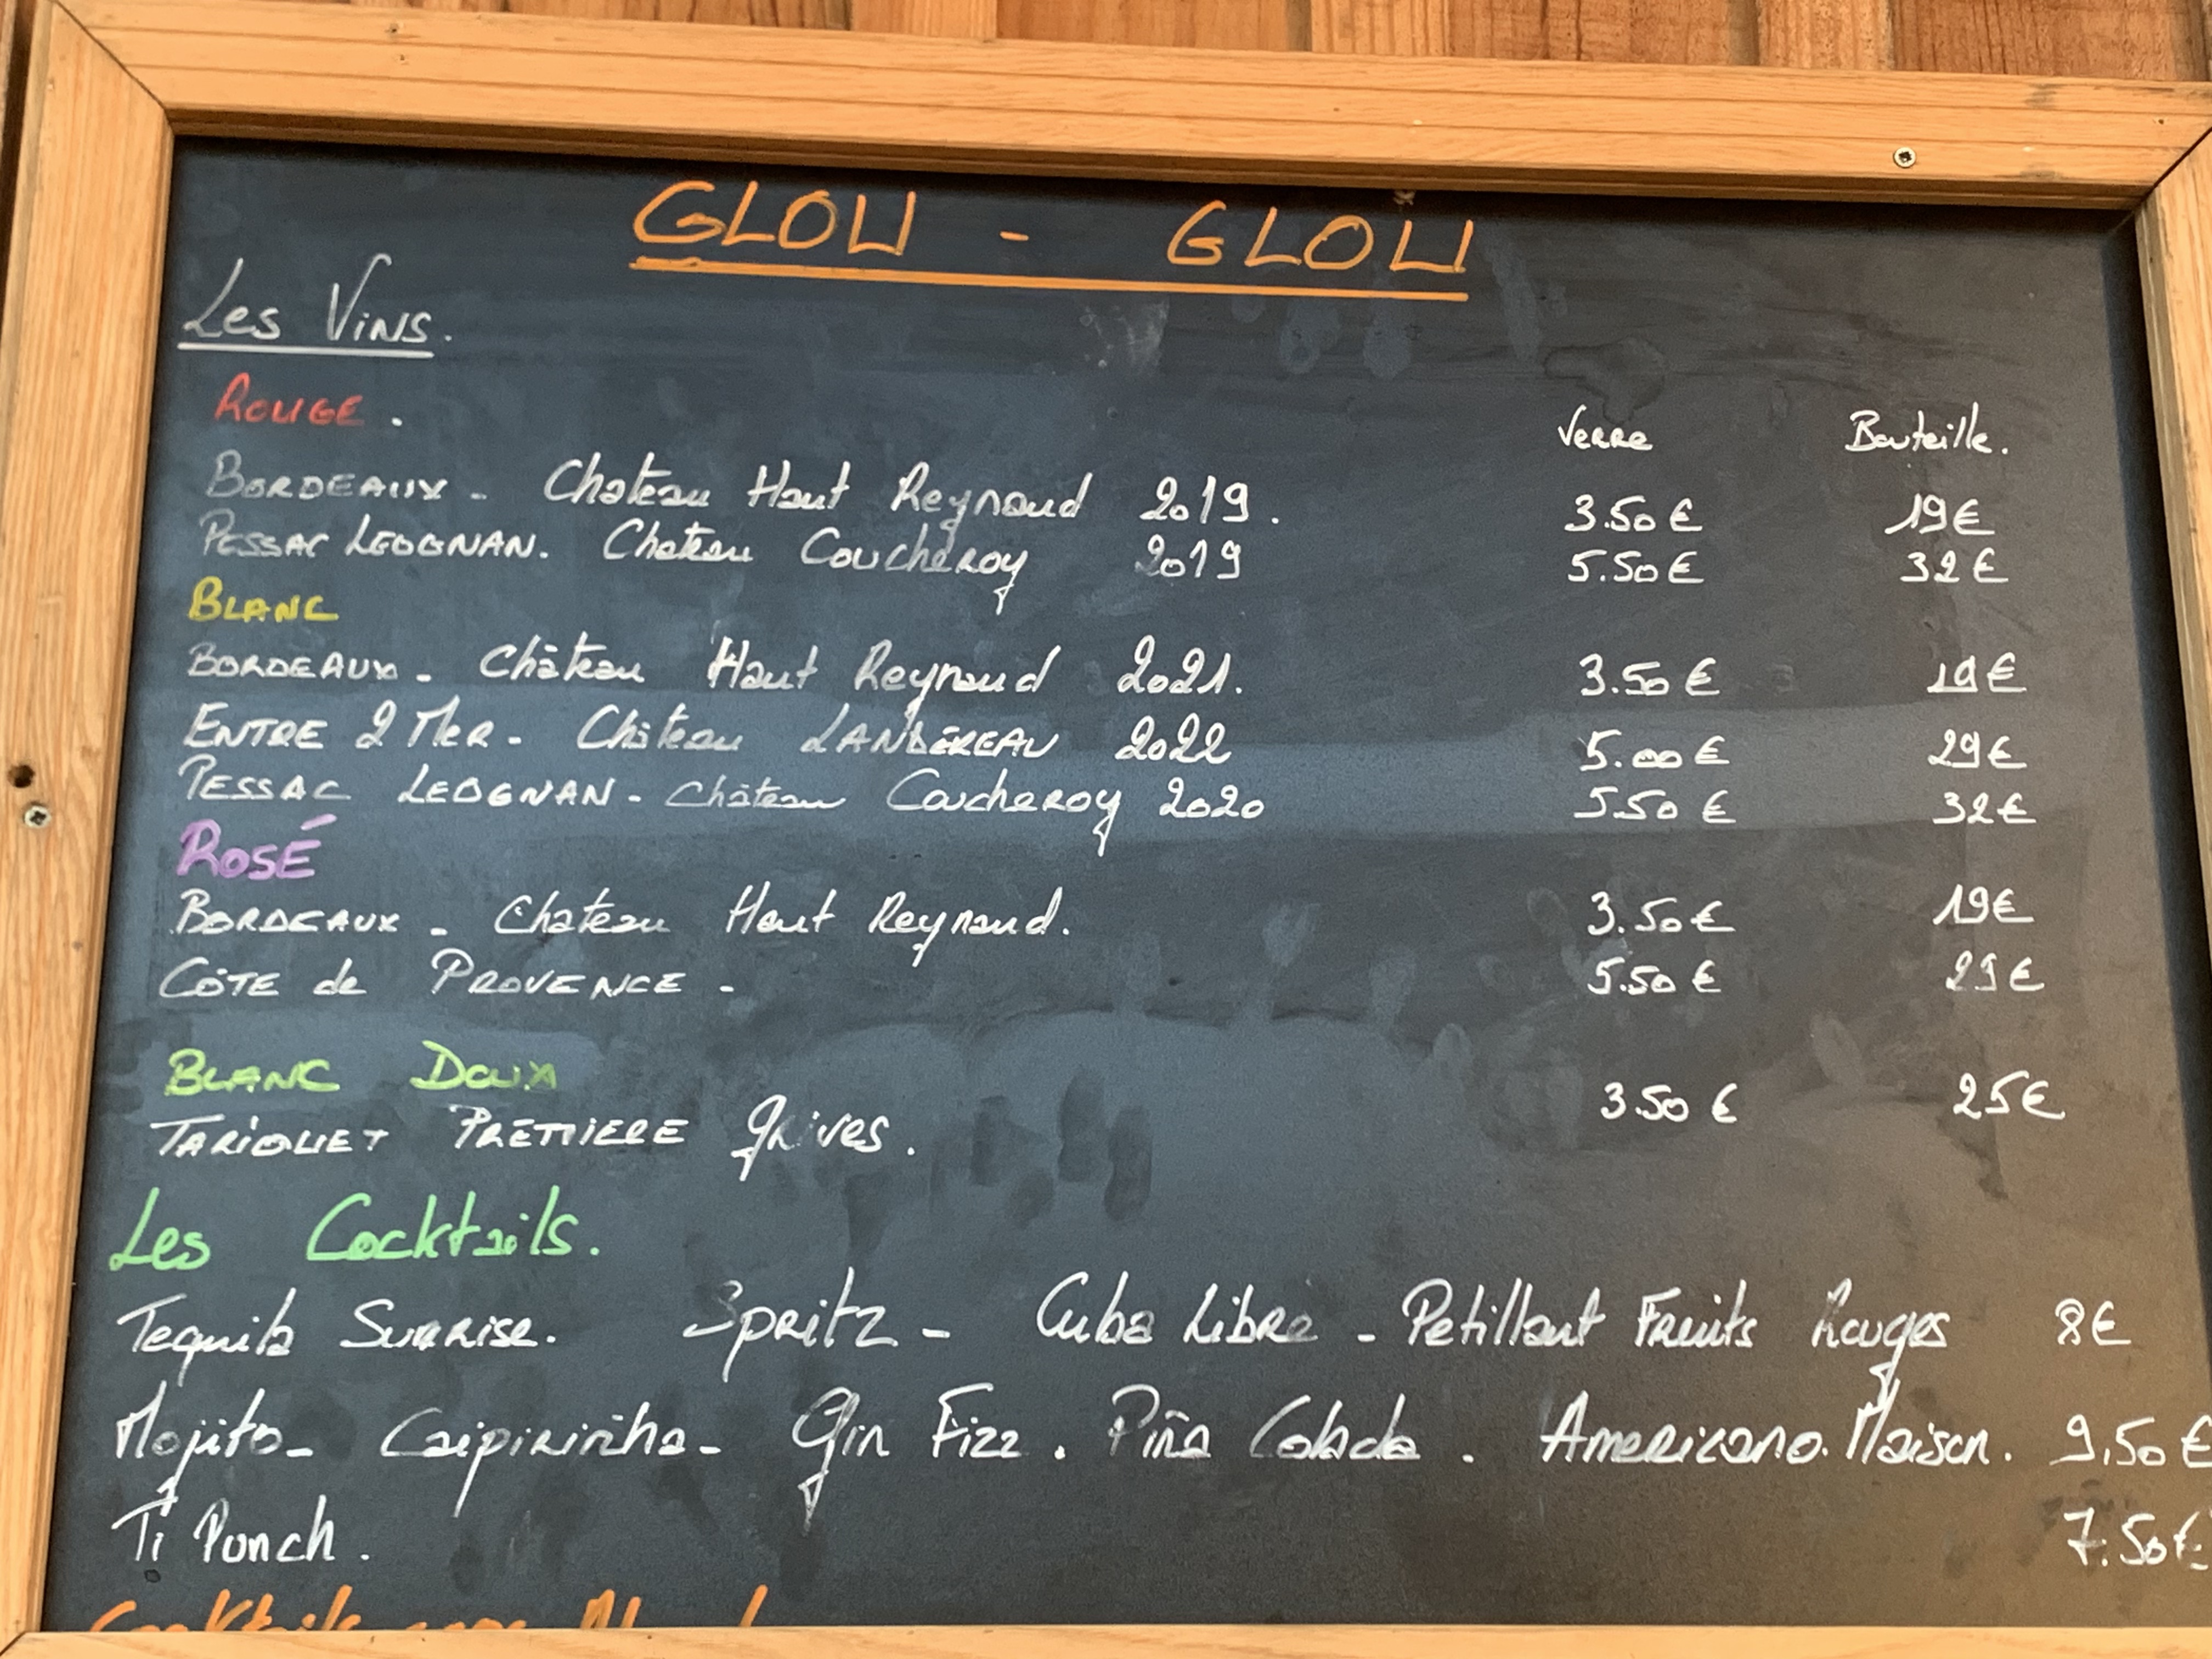 GLOU - GLOU
Les Vins.
ROUGE.
Verre Bouteille.
BORDEAUX - Chateau Haut Reynaud 2019. 3.50 € 19€
PESSAC LEOGNAN. Chateau Coucheroy 2019 5.50€ 32€
BLANC
BORDEAUX - Château Haut Reynaud 2021. 3.50 € 19€
ENTRE 2 MER - Château LANDEREAU 2022 5.00€ 29€
PESSAC LEOGNAN - Château Coucheroy 2020 5.50 € 32€
ROSÉ
BORDEAUX - Chateau Haut Reynaud. 3.50€ 19€
CÔTE de PROVENCE - 5.50 € 29€
BLANC DOUX
3.50 € 25€
TARIQUET PREMIERE Grives.
Les Cocktails.
Tequila Sunrise. Spritz - Cuba Libre - Petillant Fruits Rouges 8€
Mojito - Caipirinha - Gin Fizz. Piña Colada. Americano Maison. 9,50€
Ti Punch. 7.50€
Cocktails